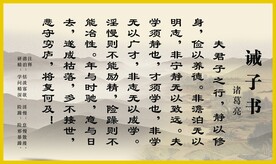 诫子书
诸葛亮
夫君子之行，静以修
身，俭以养德。非澹泊无以
明志，非宁静无以致远。夫
学须静也，才须学也，非学
无以广才，非志无以成学。
淫慢则不能励精，险躁则不
能冶性。年与时驰，意与日
去，遂成枯落，多不接世，
悲守穷庐，将复何及！